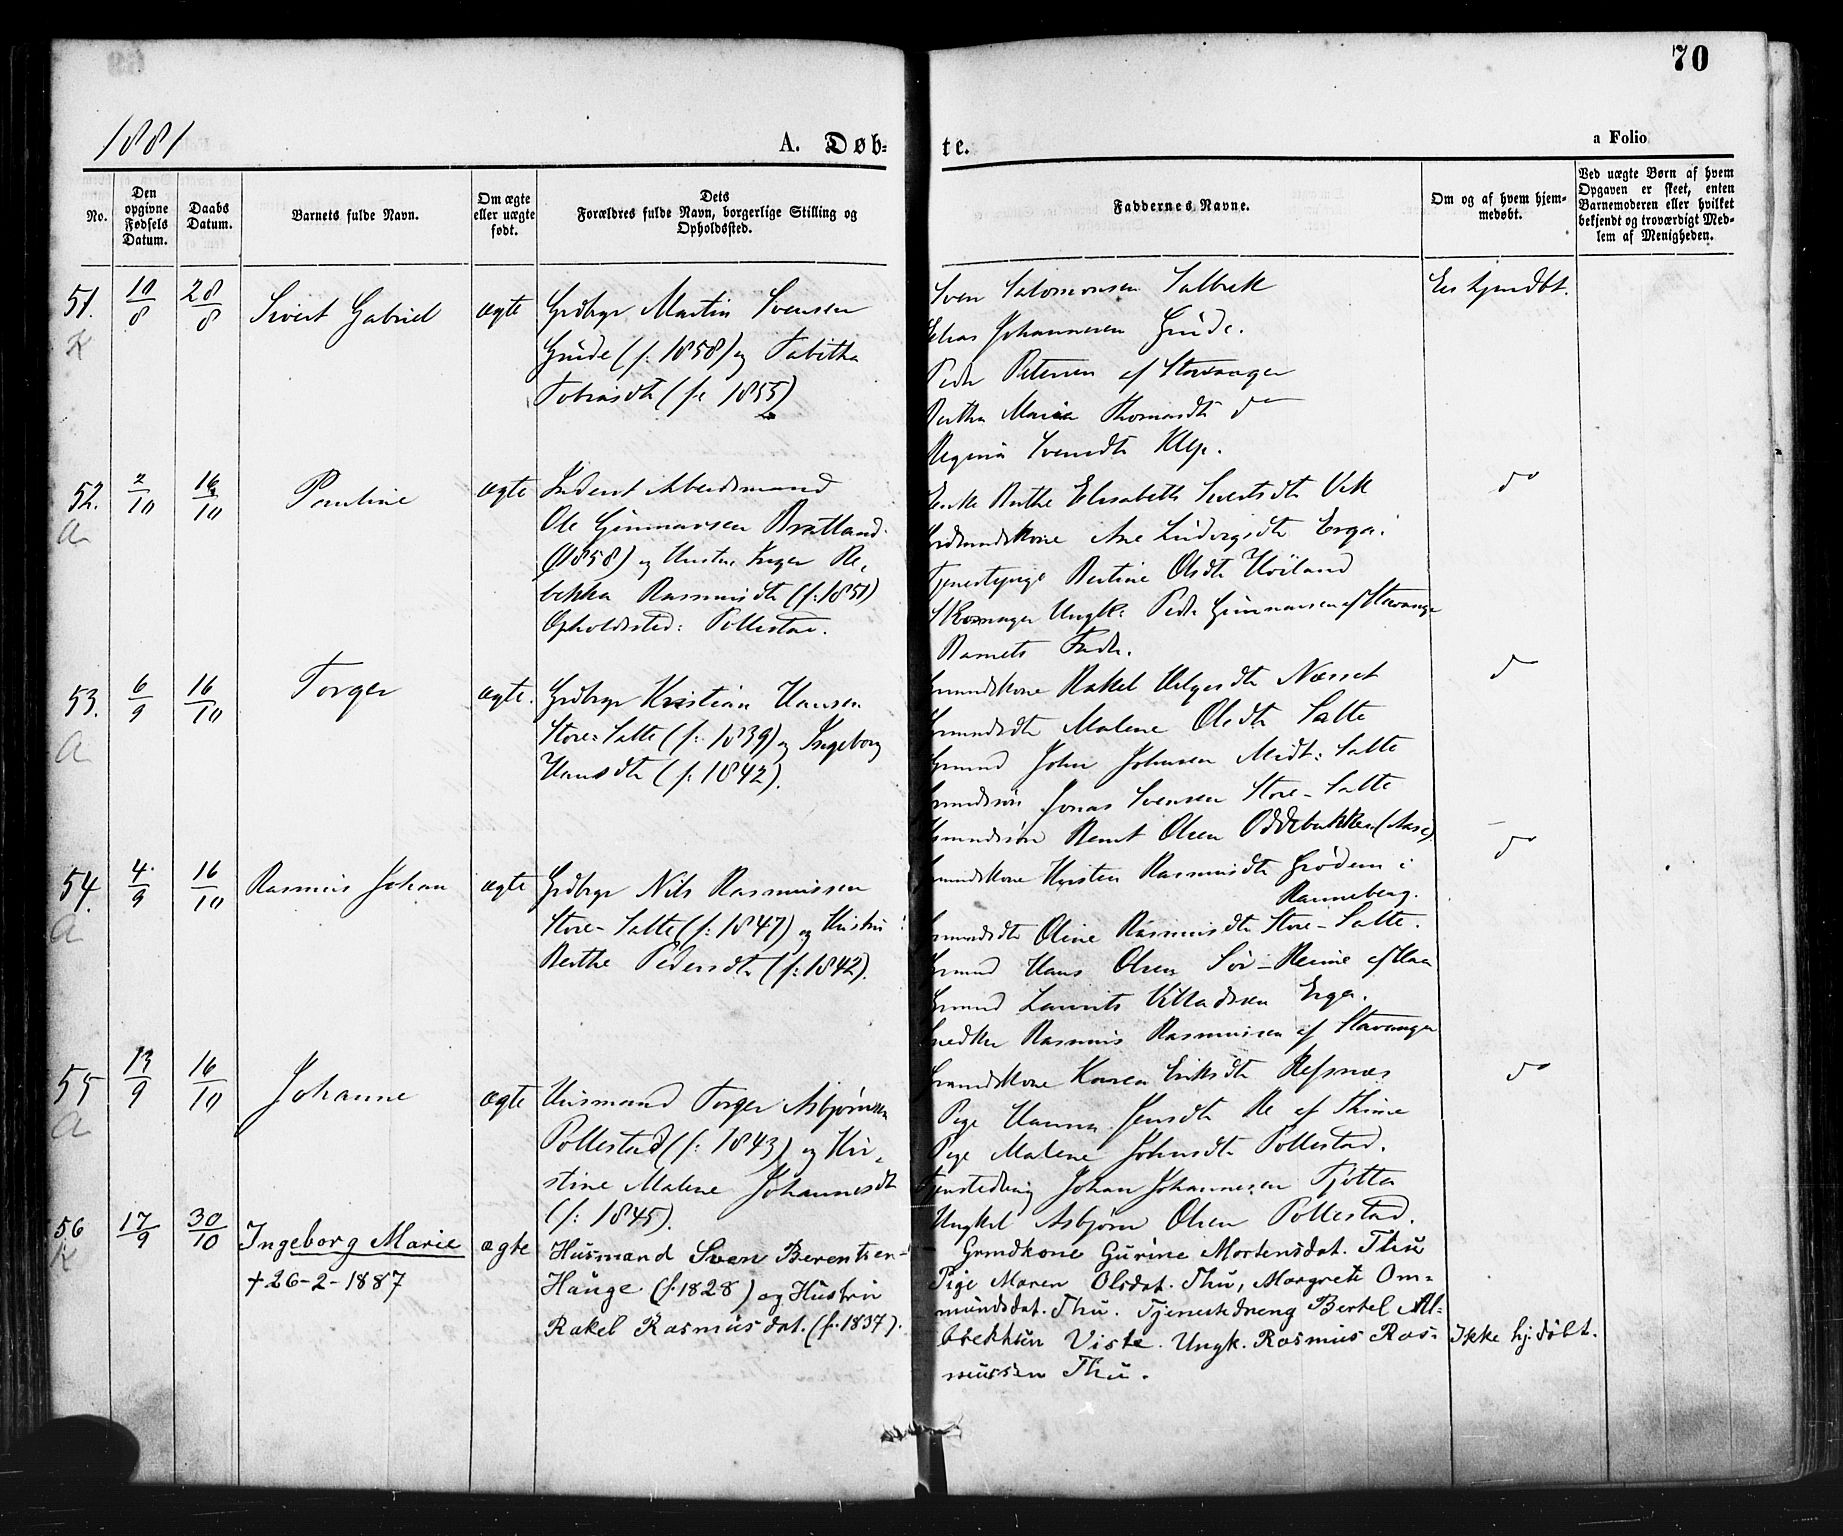 70
1881
A. Døb-
te.
a Folio
No.
Den opgivne Fødsels Datum.
Daabs Datum.
Barnets fulde Navn.
Om ægte eller uægte født.
Dets Forældres fulde Navn, borgerlige Stilling og Opholdssted.
Faddernes Navne.
Om og af hvem hjem-
medøbt.
Ved uægte Børn af hvem
Opgaven er skeet, enten
Barnemoderen eller hvilket
bekjendt og troværdigt Med-
lem af Menigheden.
51. 10/8 28/8 Sivert Gabriel ægte Grdbgr Martin Svensen
Grude (f: 1858) og Tabitha
Tobiasdt (f: 1855)
K
Sven Salomonsen Salbek
Elias Johannesen Grude.
Peder Petersen af Stavanger
Bertha Maria Thomasdt do
Regina Svensdt Klep.
52. 2/10 16/10 Pauline ægte
Ole Gunnarsen Bratland
(1858) og Hustru Inger Re-
bekka Rasmusdt (f: 1851)
Opholdssted: Pollestad.
A
Enke Berthe Elisabeth Sivertsdt Vik
Grdmandskone Ane Ludvigsdt Erga.
Tjenestepige Bertine Olsdt Høiland
Skomager Ungk: Peder Gunnarsen af Stavanger
Barnets Fader.
do
53. 6/9 16/10 Torger ægte. Grdbgr Kristian Hansen
Store-Salte (f: 1839) og Ingeborg
Hansdt (f: 1842).
A
Grmandskone Rakel Helgesdt Næsset
Malene Olsdt Salte
Grmand John Johnsen Midt-Salte
Jonas Svensen Store-Salte
Berent Olsen Oddebakken
do
54. 4/9 16/10 Rasmus Johan ægte Grdbgr Nils Rasmussen
Store-Salte (f: 1847) og Hustru
Berthe Pedersdt (f: 1842).
A
Grmandskone Kirsten Rasmusdt Grødem i
Ranneberg.
Oline Rasmusdt Store-Salte.
Grmand Hans Olsen Sør-Reime af Haa
Grmand Laurits Villadsen Erga.
Snedker Rasmus Rasmussen af Stavanger
do
55 13/9 16/10 Johanne ægte Husmand Torger Asbjørnsen
Pollestad (f: 1843) og Kri-
stine Malene Johannesdt
(f: 1845).
A
Grmandskone Karen Eriksdt Refsnæs
Pige Hanna Jensdt Re af Thime
Pige Malene Johnsdt Pollestad.
Johan Johannesen Tjøtta
Ungkel Asbjørn Olsen Pollestad.
do
56 17/9 30/10 Ingeborg Marie ægte Husmand Sven Berentsen-
Hauge (f. 1828) og Hustru
Rakel Rasmusdat. (f. 1837).
K
+ 26-2-1887
Grmdkone Gurine Mortensdat. Thu
Pige Maren Olsdat. Thu, Margrete Om-
mundsdat. Thu. Tjenestedreng Bertel Al-
brekksen Viste. Ungk. Rasmus Ras-
mussen Thu.
Ikke hj. døbt.